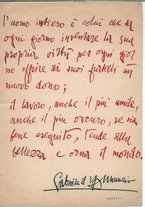 l'uomo intiero è colui che sa
ogni giorno inventare la sua
propria virtù per ogni giorno
offrire ai suoi fratelli un
nuovo dono;
il lavoro, anche il più umile,
anche il più oscuro, se sia
bene eseguito, tende alla
bellezza e orna il mondo.
Gabriele d'Annunzio